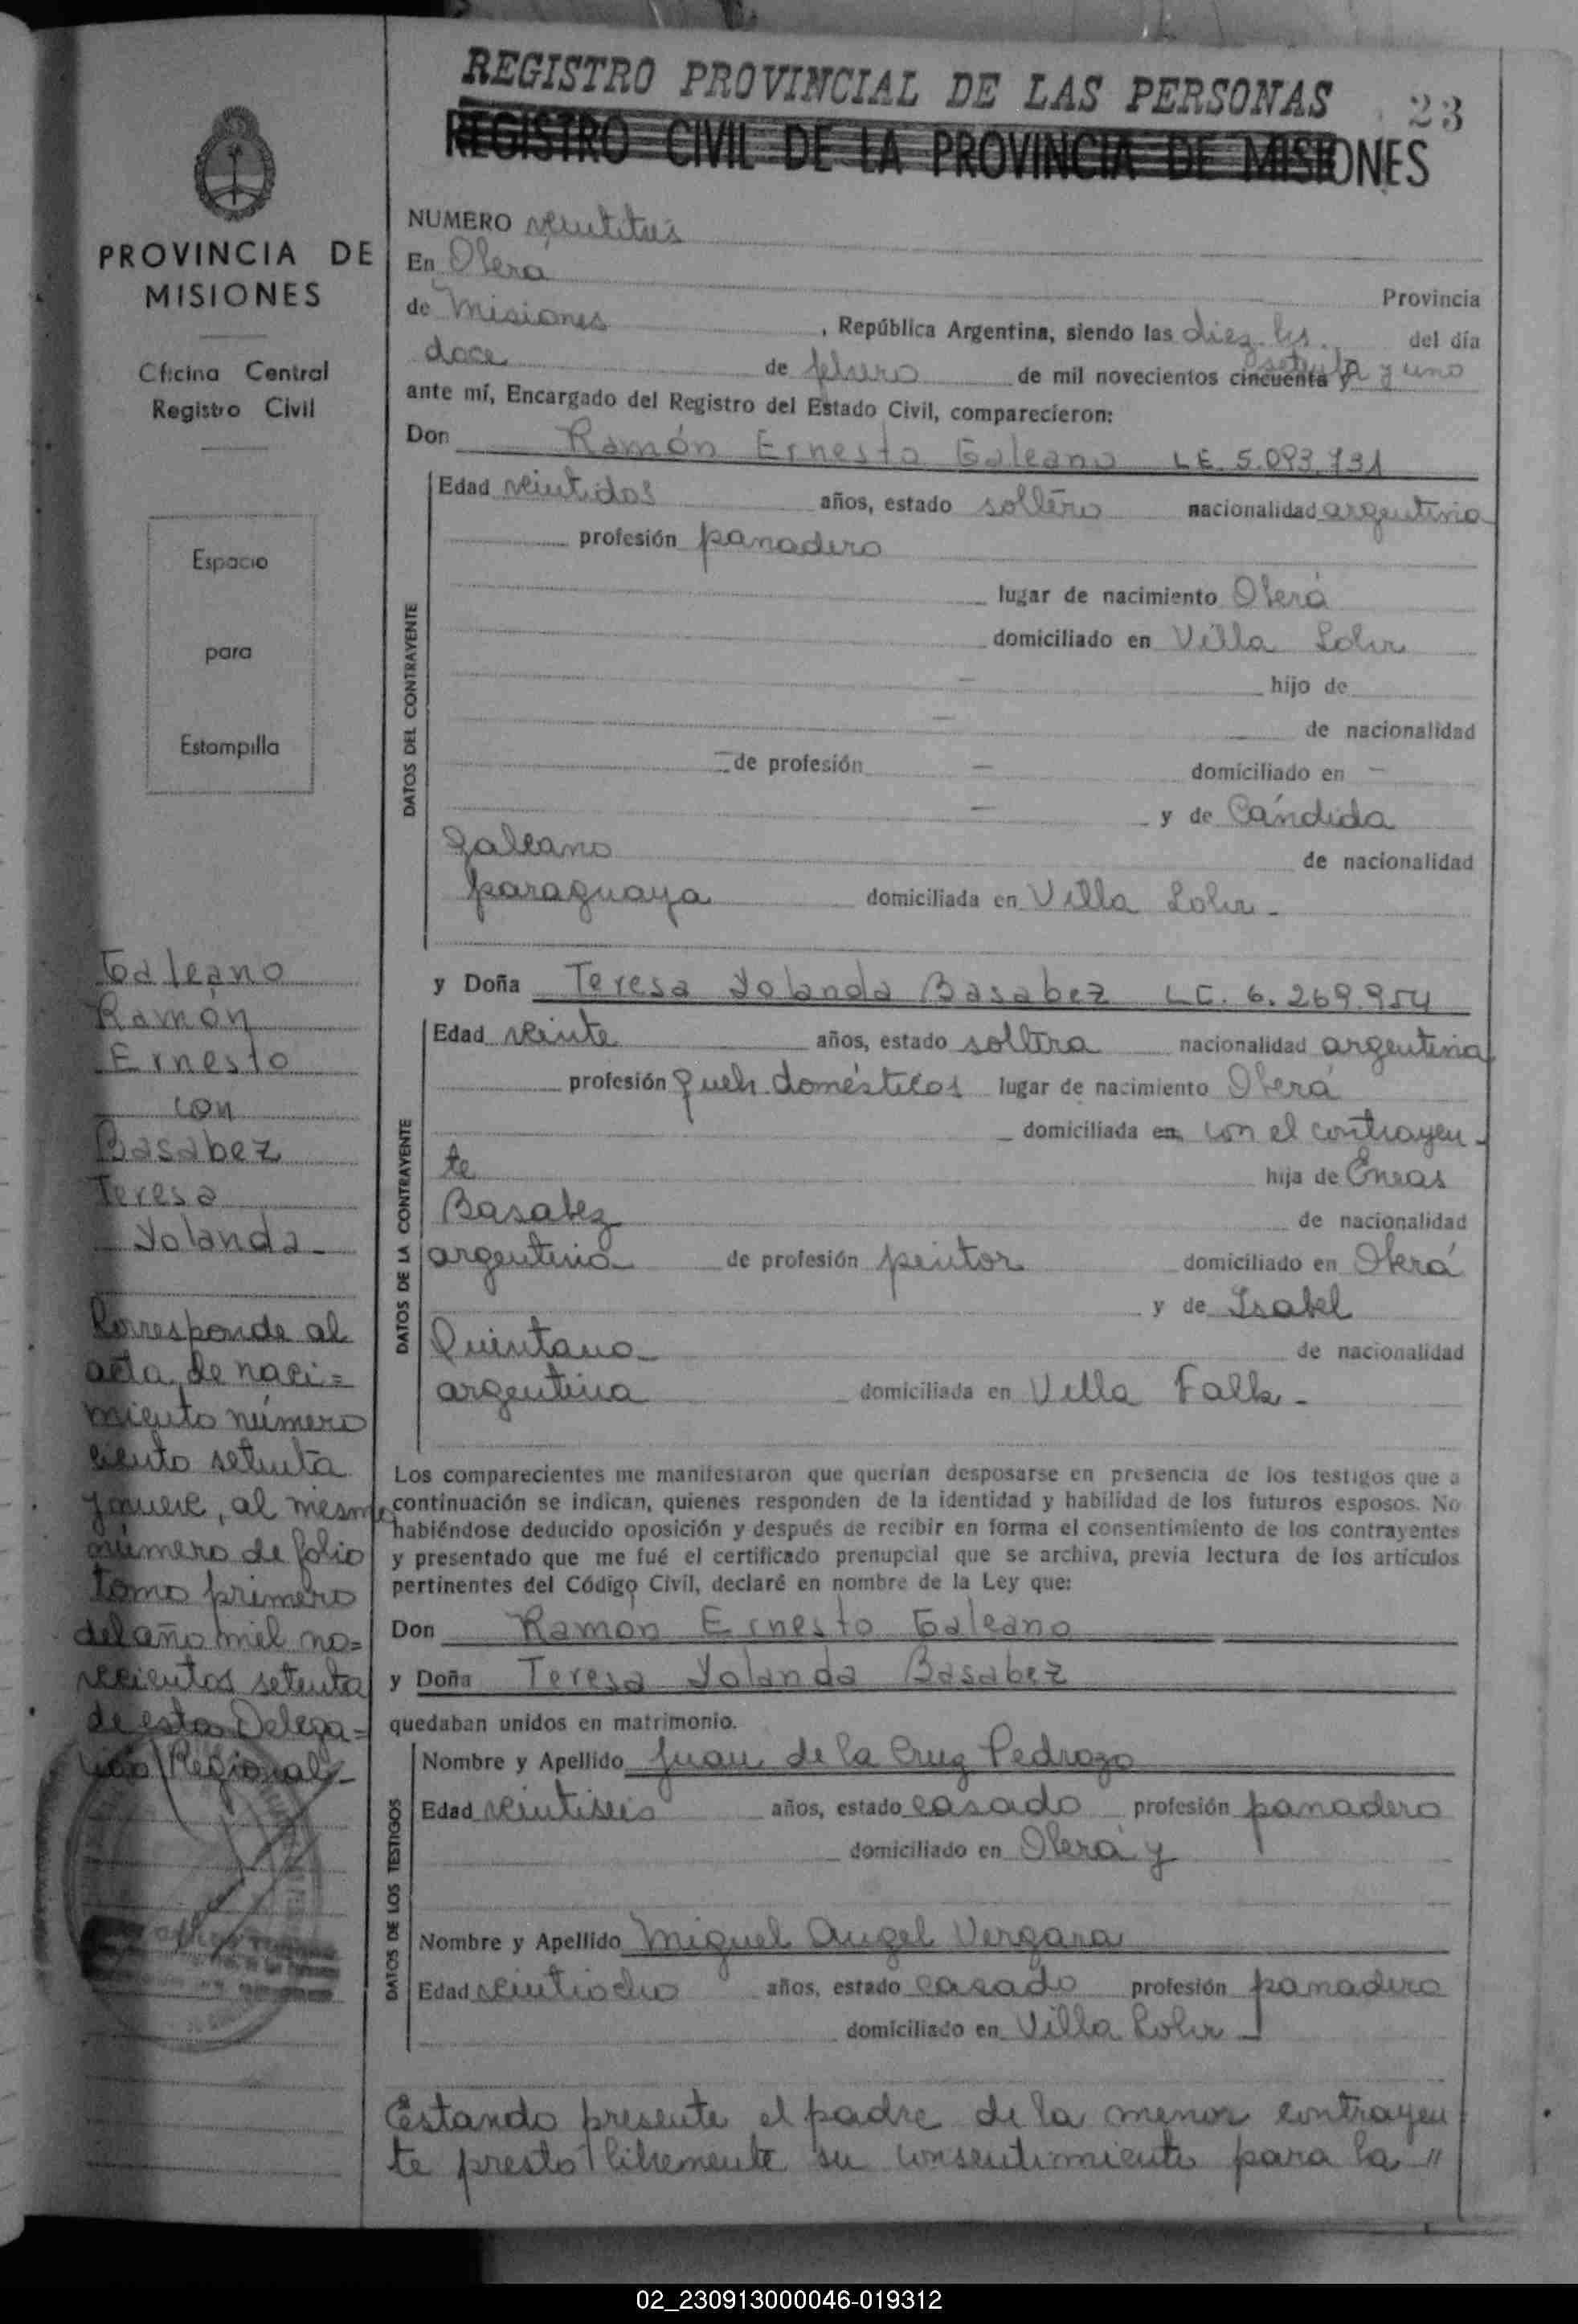 REGISTRO PROVINCIAL DE LAS PERSONAS 23
REGISTRO CIVIL DE LA PROVINCIA DE MISIONES
PROVINCIA DE
MISIONES
Oficina Central
Registro Civil
Espacio
para
Estampilla
Galeano
Ramón
Ernesto
con
Basabez
Teresa
Yolanda
Corresponde al
acta de naci=
miento número
ciento setenta
y nueve, al mismo
número de folio
tomo primero
del año mil no=
vecientos setenta
de esta Delega=
ción Regional
NUMERO veintitrés
En Oberá
Provincia
de Misiones , República Argentina, siendo las diez hs. del día
doce de febrero de mil novecientos cincuenta y setenta y uno
ante mí, Encargado del Registro del Estado Civil, comparecieron:
Don Ramón Ernesto Galeano L.E. 5.093.731
DATOS DEL CONTRAYENTE
Edad veintidos años, estado soltero nacionalidad argentina
profesión panadero
lugar de nacimiento Oberá
domiciliado en Villa
— hijo de
— de nacionalidad
— de profesión — domiciliado en —
— y de Cándida
Galeano de nacionalidad
paraguaya domiciliada en Villa
y Doña Teresa Yolanda Basabez L.C. 6.269.954
DATOS DE LA CONTRAYENTE
Edad veinte años, estado soltera nacionalidad argentina
profesión queh. domésticos lugar de nacimiento Oberá
domiciliada en con el contrayen-
te hija de Eneas
Basabez de nacionalidad
argentina de profesión pintor domiciliado en Oberá
y de Isabel
Quintana de nacionalidad
argentina domiciliada en Villa Falk -
Los comparecientes me manifestaron que querían desposarse en presencia de los testigos que a
continuación se indican, quienes responden de la identidad y habilidad de los futuros esposos. No
habiéndose deducido oposición y después de recibir en forma el consentimiento de los contrayentes
y presentado que me fué el certificado prenupcial que se archiva, previa lectura de los artículos
pertinentes del Código Civil, declaré en nombre de la Ley que:
Don Ramón Ernesto Galeano
y Doña Teresa Yolanda Basabez
quedaban unidos en matrimonio.
DATOS DE LOS TESTIGOS
Nombre y Apellido Juan de la Cruz Pedrozo
Edad veintiseis años, estado casado profesión panadero
domiciliado en Oberá y
Nombre y Apellido Miguel Angel Vergara
Edad veintiocho años, estado casado profesión panadero
domiciliado en Villa
Estando presente el padre de la menor contrayen
te prestó libremente su consentimiento para la //
02_230913000046-019312